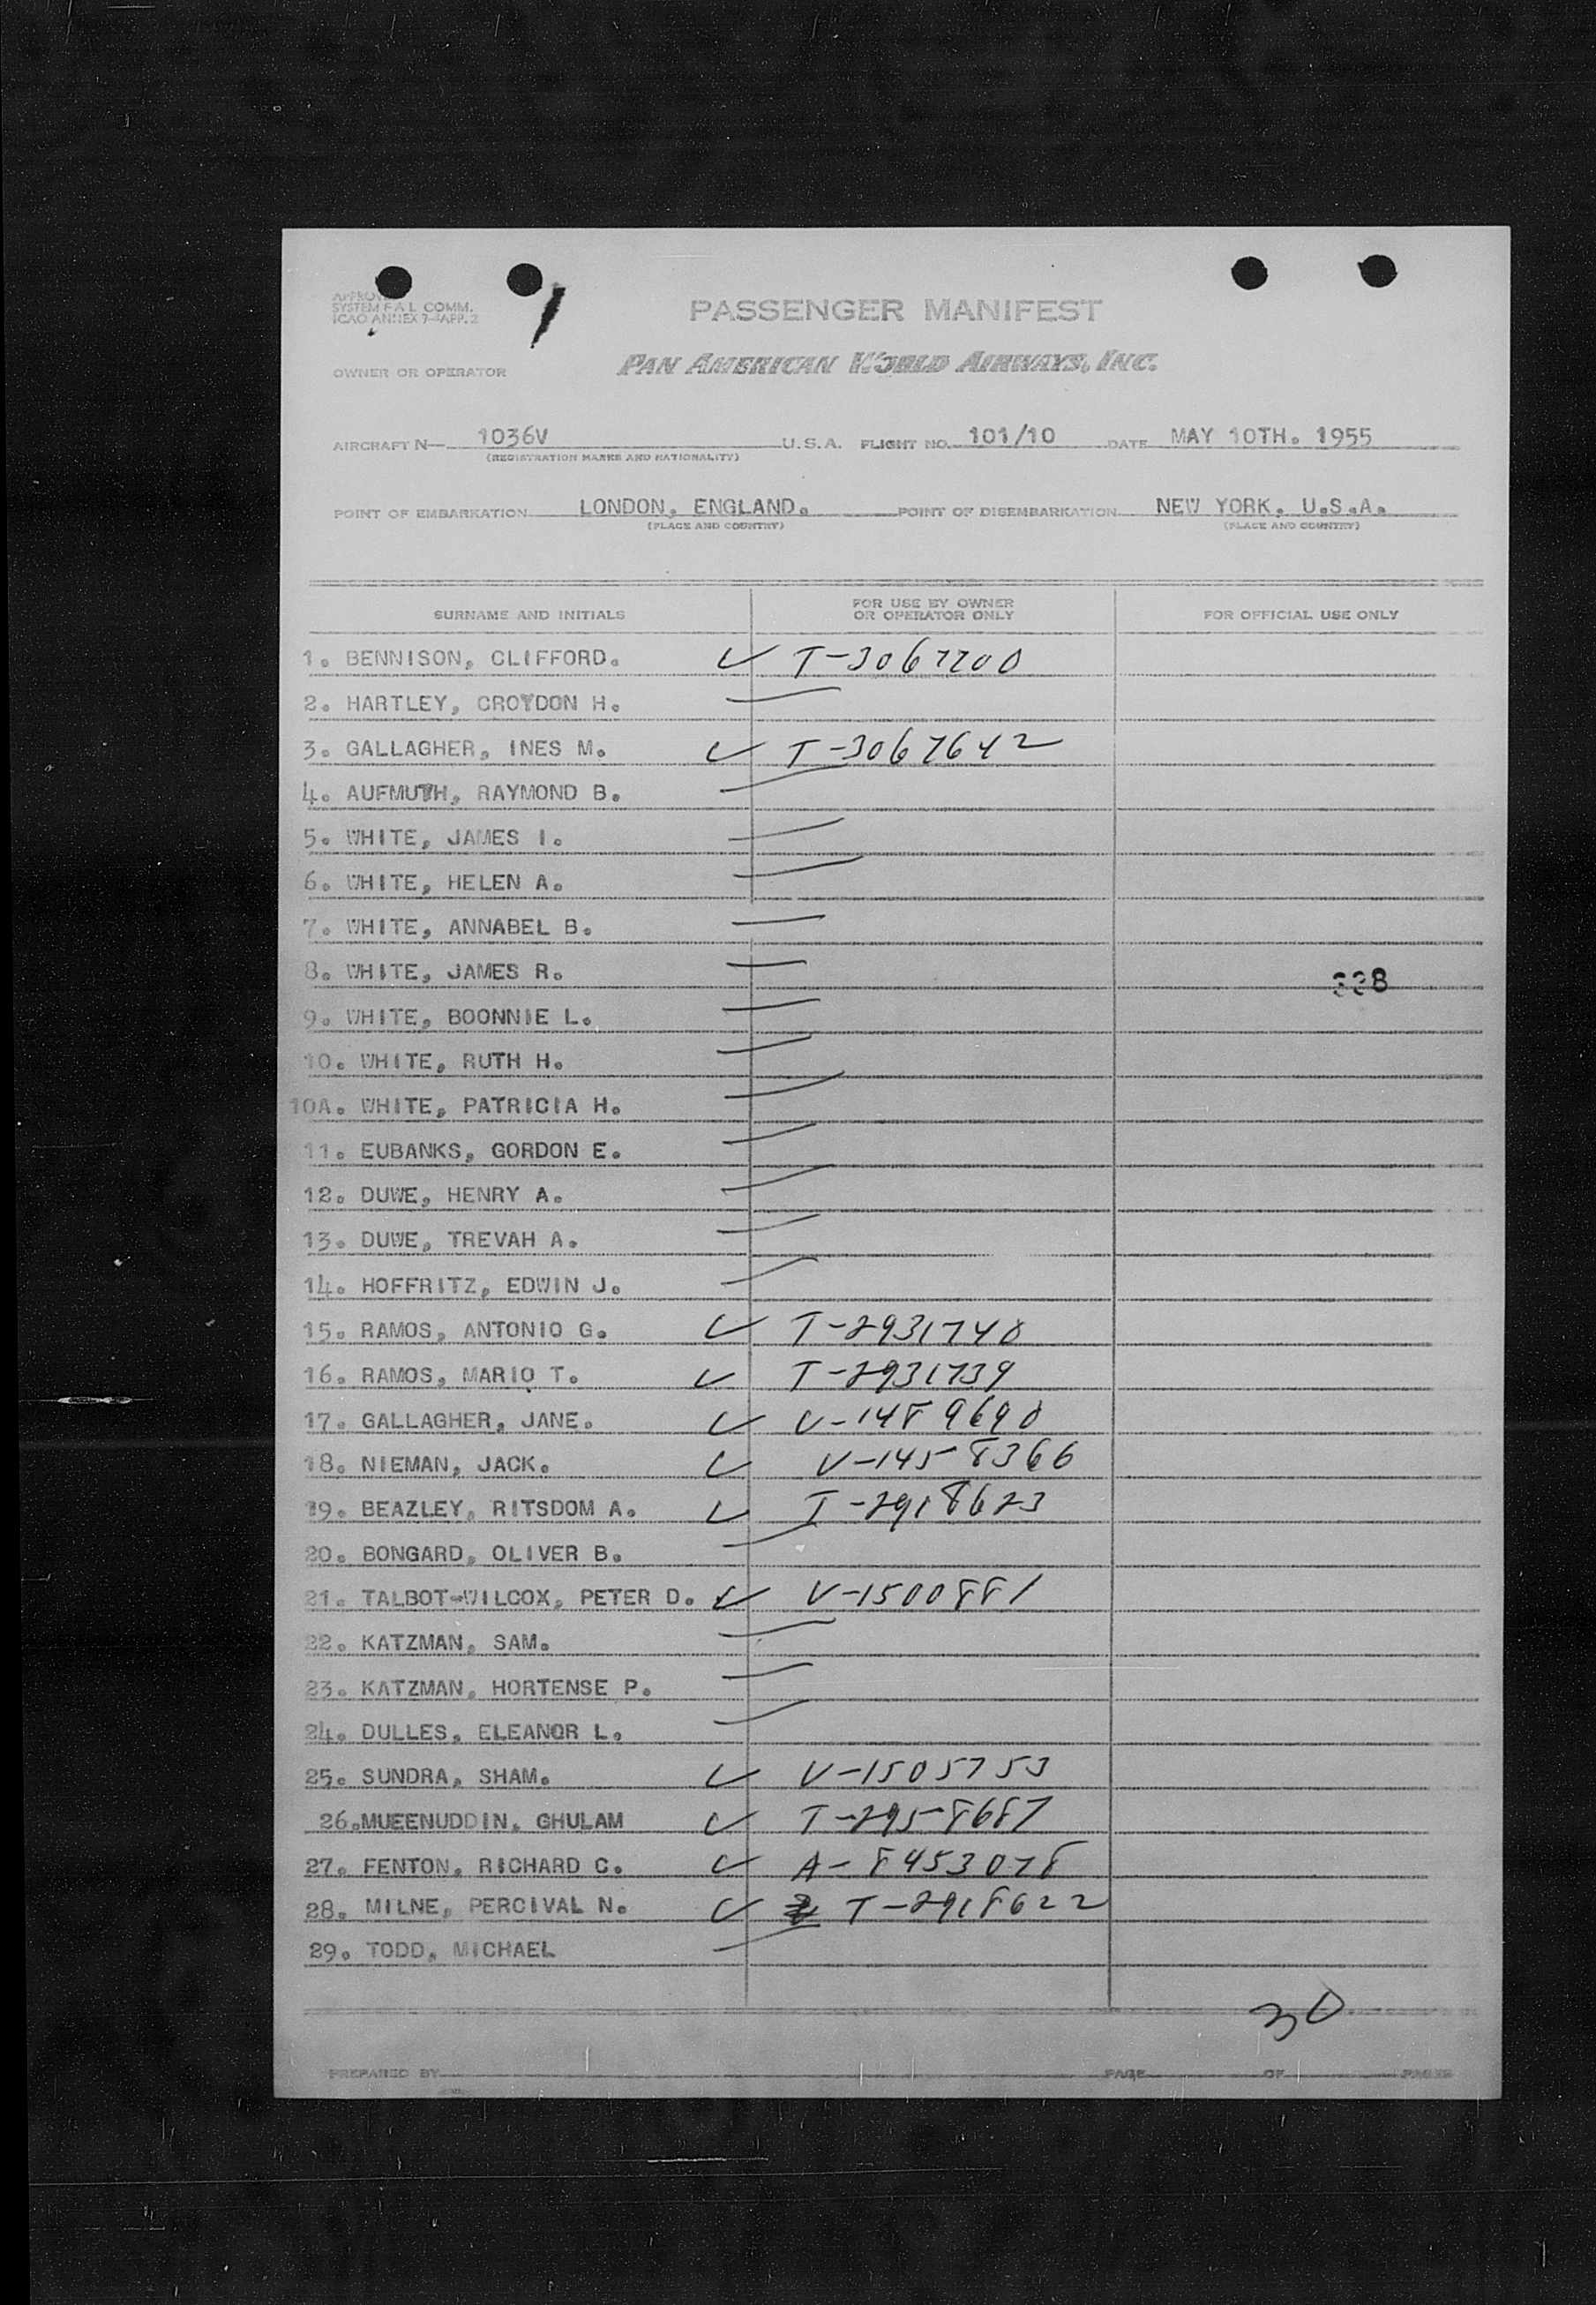 APPROVED
SYSTEM F A L COMM.
ICAO ANNEX 7-APP. 2
PASSENGER MANIFEST
OWNER OR OPERATOR PAN AMERICAN WORLD AIRWAYS, INC.
AIRCRAFT N— 1036V U.S.A. FLIGHT NO. 101/10 DATE MAY 10TH. 1955
(REGISTRATION MARKS AND NATIONALITY)
POINT OF EMBARKATION LONDON, ENGLAND. POINT OF DISEMBARKATION NEW YORK, U.S.A.
(PLACE AND COUNTRY) (PLACE AND COUNTRY)
SURNAME AND INITIALS FOR USE BY OWNER OR OPERATOR ONLY FOR OFFICIAL USE ONLY
1. BENNISON, CLIFFORD. ✓ T-3067200
2. HARTLEY, CROYDON H.
3. GALLAGHER, INES M. ✓ T-3067642
4. AUFMUTH, RAYMOND B.
5. WHITE, JAMES I.
6. WHITE, HELEN A.
7. WHITE, ANNABEL B.
8. WHITE, JAMES R. 338
9. WHITE, BOONNIE L.
10. WHITE, RUTH H.
10A. WHITE, PATRICIA H.
11. EUBANKS, GORDON E.
12. DUWE, HENRY A.
13. DUWE, TREVAH A.
14. HOFFRITZ, EDWIN J.
15. RAMOS, ANTONIO G. ✓ T-2931740
16. RAMOS, MARIO T. ✓ T-2931739
17. GALLAGHER, JANE. ✓ V-1489690
18. NIEMAN, JACK. ✓ V-1458366
19. BEAZLEY, RITSDOM A. ✓ T-2918623
20. BONGARD, OLIVER B.
21. TALBOT-WILCOX, PETER D. ✓ V-1500881
22. KATZMAN, SAM.
23. KATZMAN, HORTENSE P.
24. DULLES, ELEANOR L.
25. SUNDRA, SHAM. ✓ V-1505753
26. MUEENUDDIN, GHULAM ✓ T-2958687
27. FENTON, RICHARD C. ✓ A-8453078
28. MILNE, PERCIVAL N. ✓ T-2918622
29. TODD, MICHAEL
30
PREPARED BY PAGE OF PAGES